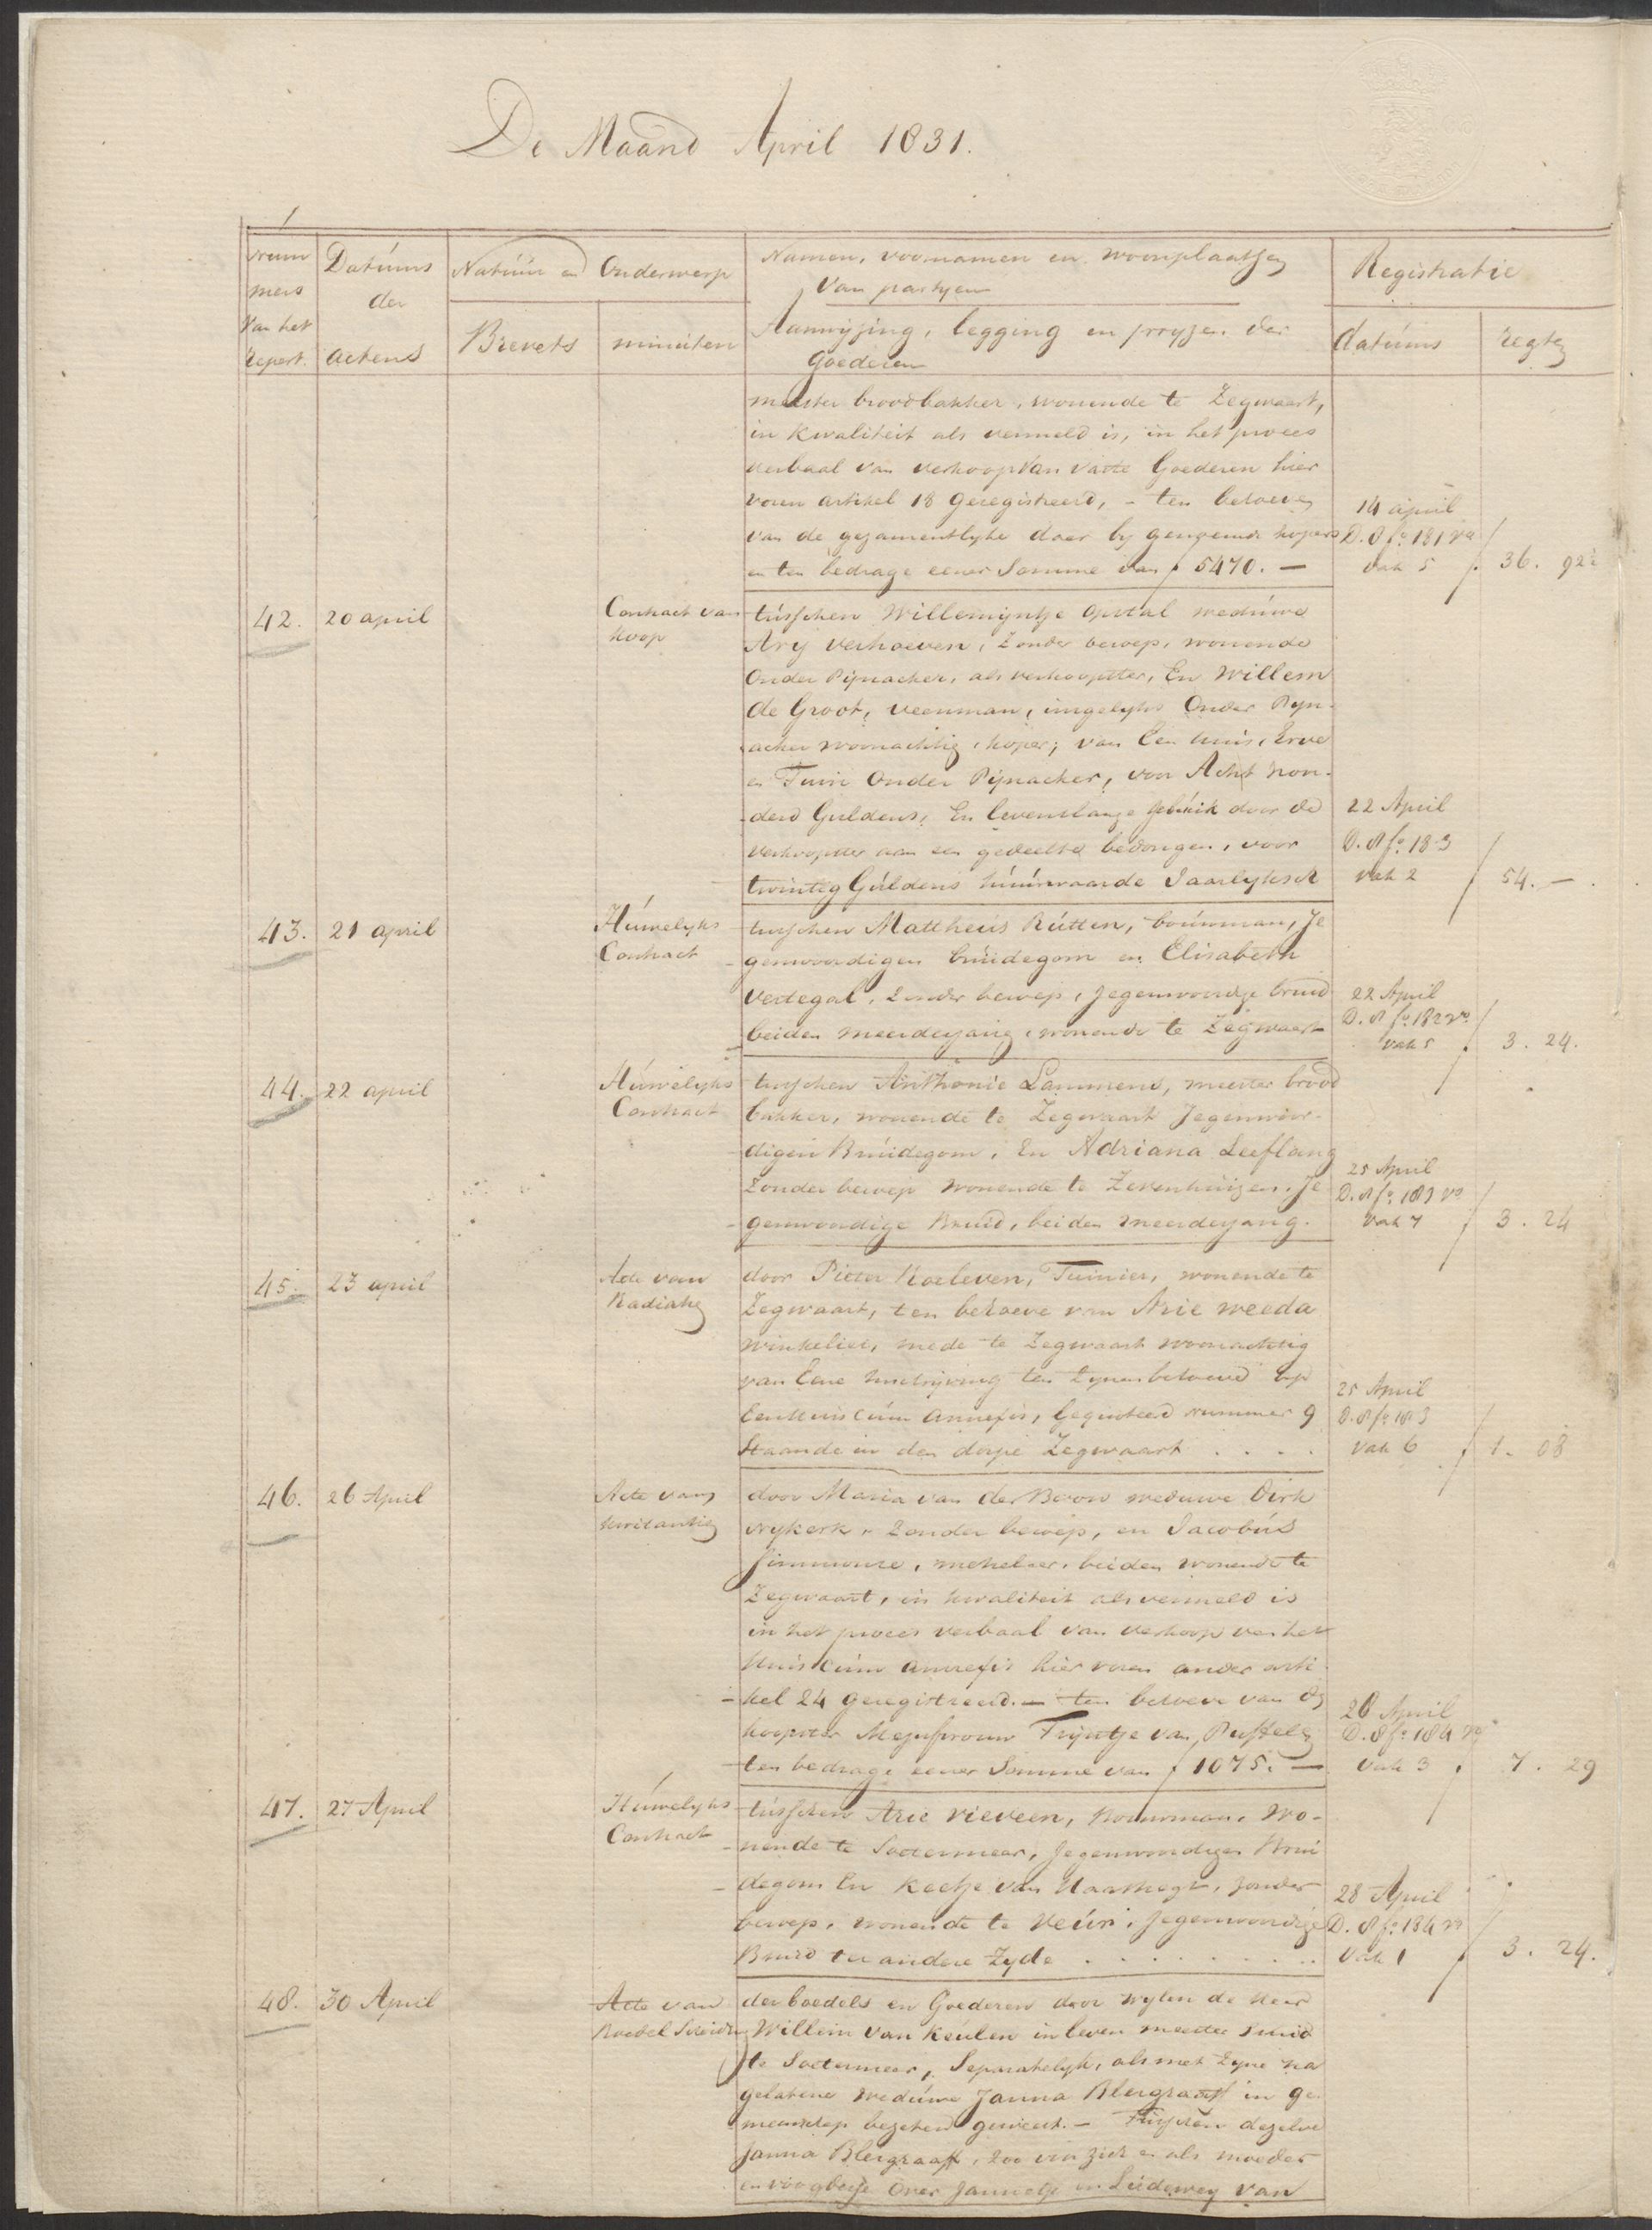 De Maand April 1831.
Num
mers
Van het
Repert.
Datúms
der
actens
Natúúr en Onderwerp
Brevets
minúten
Namen, voornamen en woonplaatsen
Van partyen
Aanwyzing, legging en pryzen der
Goederen
Registratie
datúms
regten
meester broodbakker, wonende te Zegwaart,
in kwaliteit als vermeld is, in het proces
verbaal van verkoop van vaste Goederen hier
voren artikel 18 geregistreerd, - ten behoeven
van de gezamentlyke daar by genoemde kopers
en ten bedrage eener Somme van f 5470. —
14 april
D. 8 fo. 181 vo
vak 5
f 36. 92½
42.
20 april
Contract van
koop
tússchen Willemijntje Opstal wedúwe
Ary Verhoeven, Zonder beroep, wonende
Onder Pijnacker, als verkoopster, En Willem
de Groot, veenman, insgelyks Onder Pyn-
acker woonachtig, koper; van Een huis, Erve
en Tuin Onder Pijnacker, voor Acht hon-
derd Guldens, En levenslange gebúik door de
verkoopster aan een gedeelte bedongen, voor
twintig Gúldens húúrwaarde Jaarlyksch
22 April
D. 8 fo. 183
vak 2
f 54. —
43.
21 april
Húwelyks
Contract
tusschen Mattheús Rútten, boúwman, Je
genwoordigen brúidegom en Elisabeth
Vertegal, zonder beroep, Jegenwoordige bruid
beiden meerderjarig, wonende te Zegwaart
22 April
D. 8 fo. 182 vo.
vak 5
f 3. 24.
44.
22 april
Húwelyks
Contract
tusschen Anthonie Lammens, meester brood
bakker, wonende te Zegwaart Jegenwoor-
digen Brúidegom, En Adriana Leeflang
Zonder beroep wonende te Zevenhuizen, Je
genwoordige Bruid, beiden meerderjarig.
25 April
D. 8 fo. 183 vo
vak 7
f 3. 24
45.
23 april
Acte van
Radiatie
door Pieter Koeleven, Tuinier, wonende te
Zegwaart, ten behoeve van Arie Weeda
Winkelier, mede te Zegwaart woonachtig
van Eene Inschrijving ten zynen behoeve op
Een Huis cúm annexis, Gequoteerd nummer 9
Staande in den dorpe Zegwaart . . . .
25 April
D. 8 fo. 183
vak 6
f 1. 08
46.
26 April
Acte van
door Maria van der weduwe Dirk
Nykerk, Zonder beroep, en Jacobús
, makelaar, beiden wonende te
Zegwaart, in kwaliteit als vermeld is
in het proces verbaal van verkoop van het
Huis cúm annexis hier voren onder arti
kel 24 geregistreerd. — ten behoeve van de
koopster Mejufvrouw Trijntje van
ten bedrage eener Somme van f 1075. —
28 April
D. 8 fo. 184 vo
vak 3
f 7. 29
47.
27 April
Húwelyks
Contract
tússchen Arie Vieveen, Bouwman, Wo-
nende te Soetermeer, Jegenwoordigen Brui
degom En Keetje van , zonder
beroep, wonende te Veúr, Jegenwoordige
Bruid ter andere Zyde . . . . . .
28 April
D. 8 fo. 184 vo
vak 1
f 3. 24.
48.
30 April
Acte van
Boedel Scheiding
der boedels en Goederen door wylen de Heer
Willem van Keulen in leven meester Smid
te Soetermeer, Separatelyk, als met zyne na
gelatene wedúwe Janna Blergraaff in ge-
meenschap bezeten geweest. — Tússchen dezelve
Janna Blergraaff, zoo voor zich en als moeder
en voogdesse over Jannetje en van